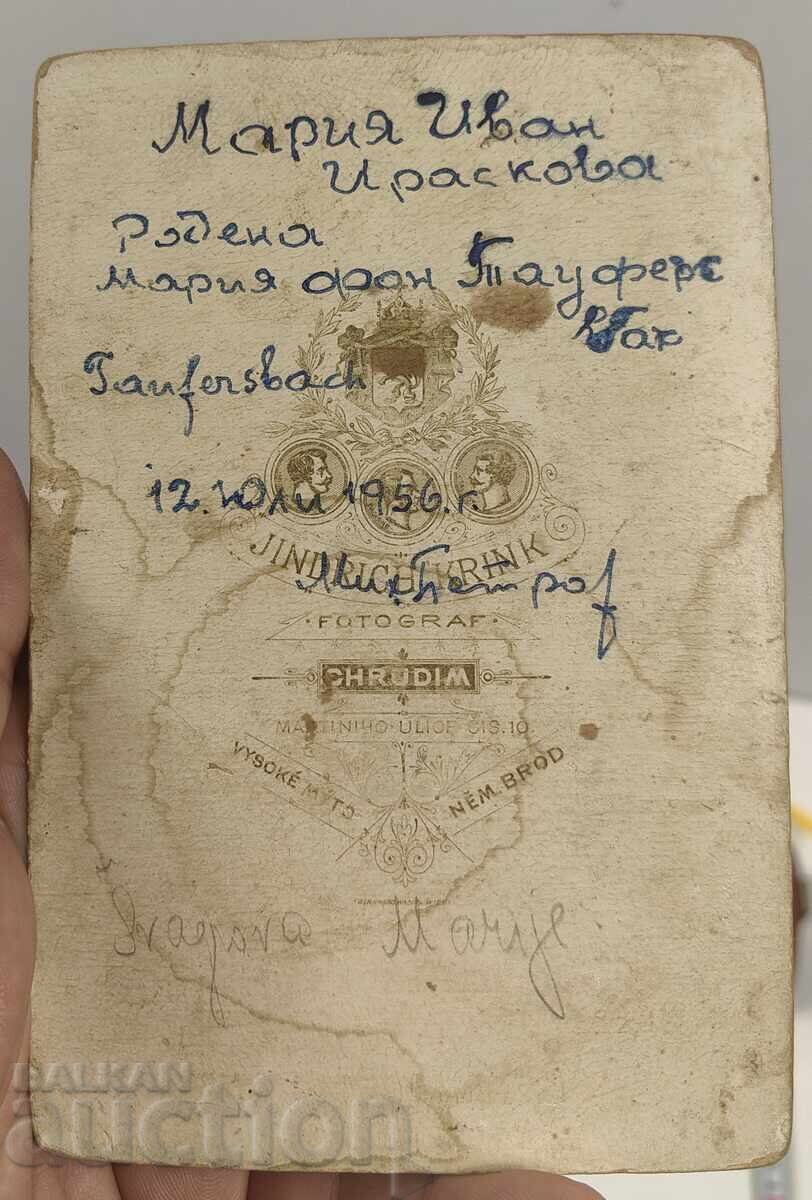 Мария Иван
Ираскова
Родена
Мария фон Тауферс
Taufersbach
12. Юли 1956. г.
JINDŘICH KRINK
Мих. Петров
FOTOGRAF
CHRUDIM
MARTINIHO ULICE ČIS. 10.
VYSOKÉ MÝTO
NĚM. BROD
Marije
BALKAN
auction